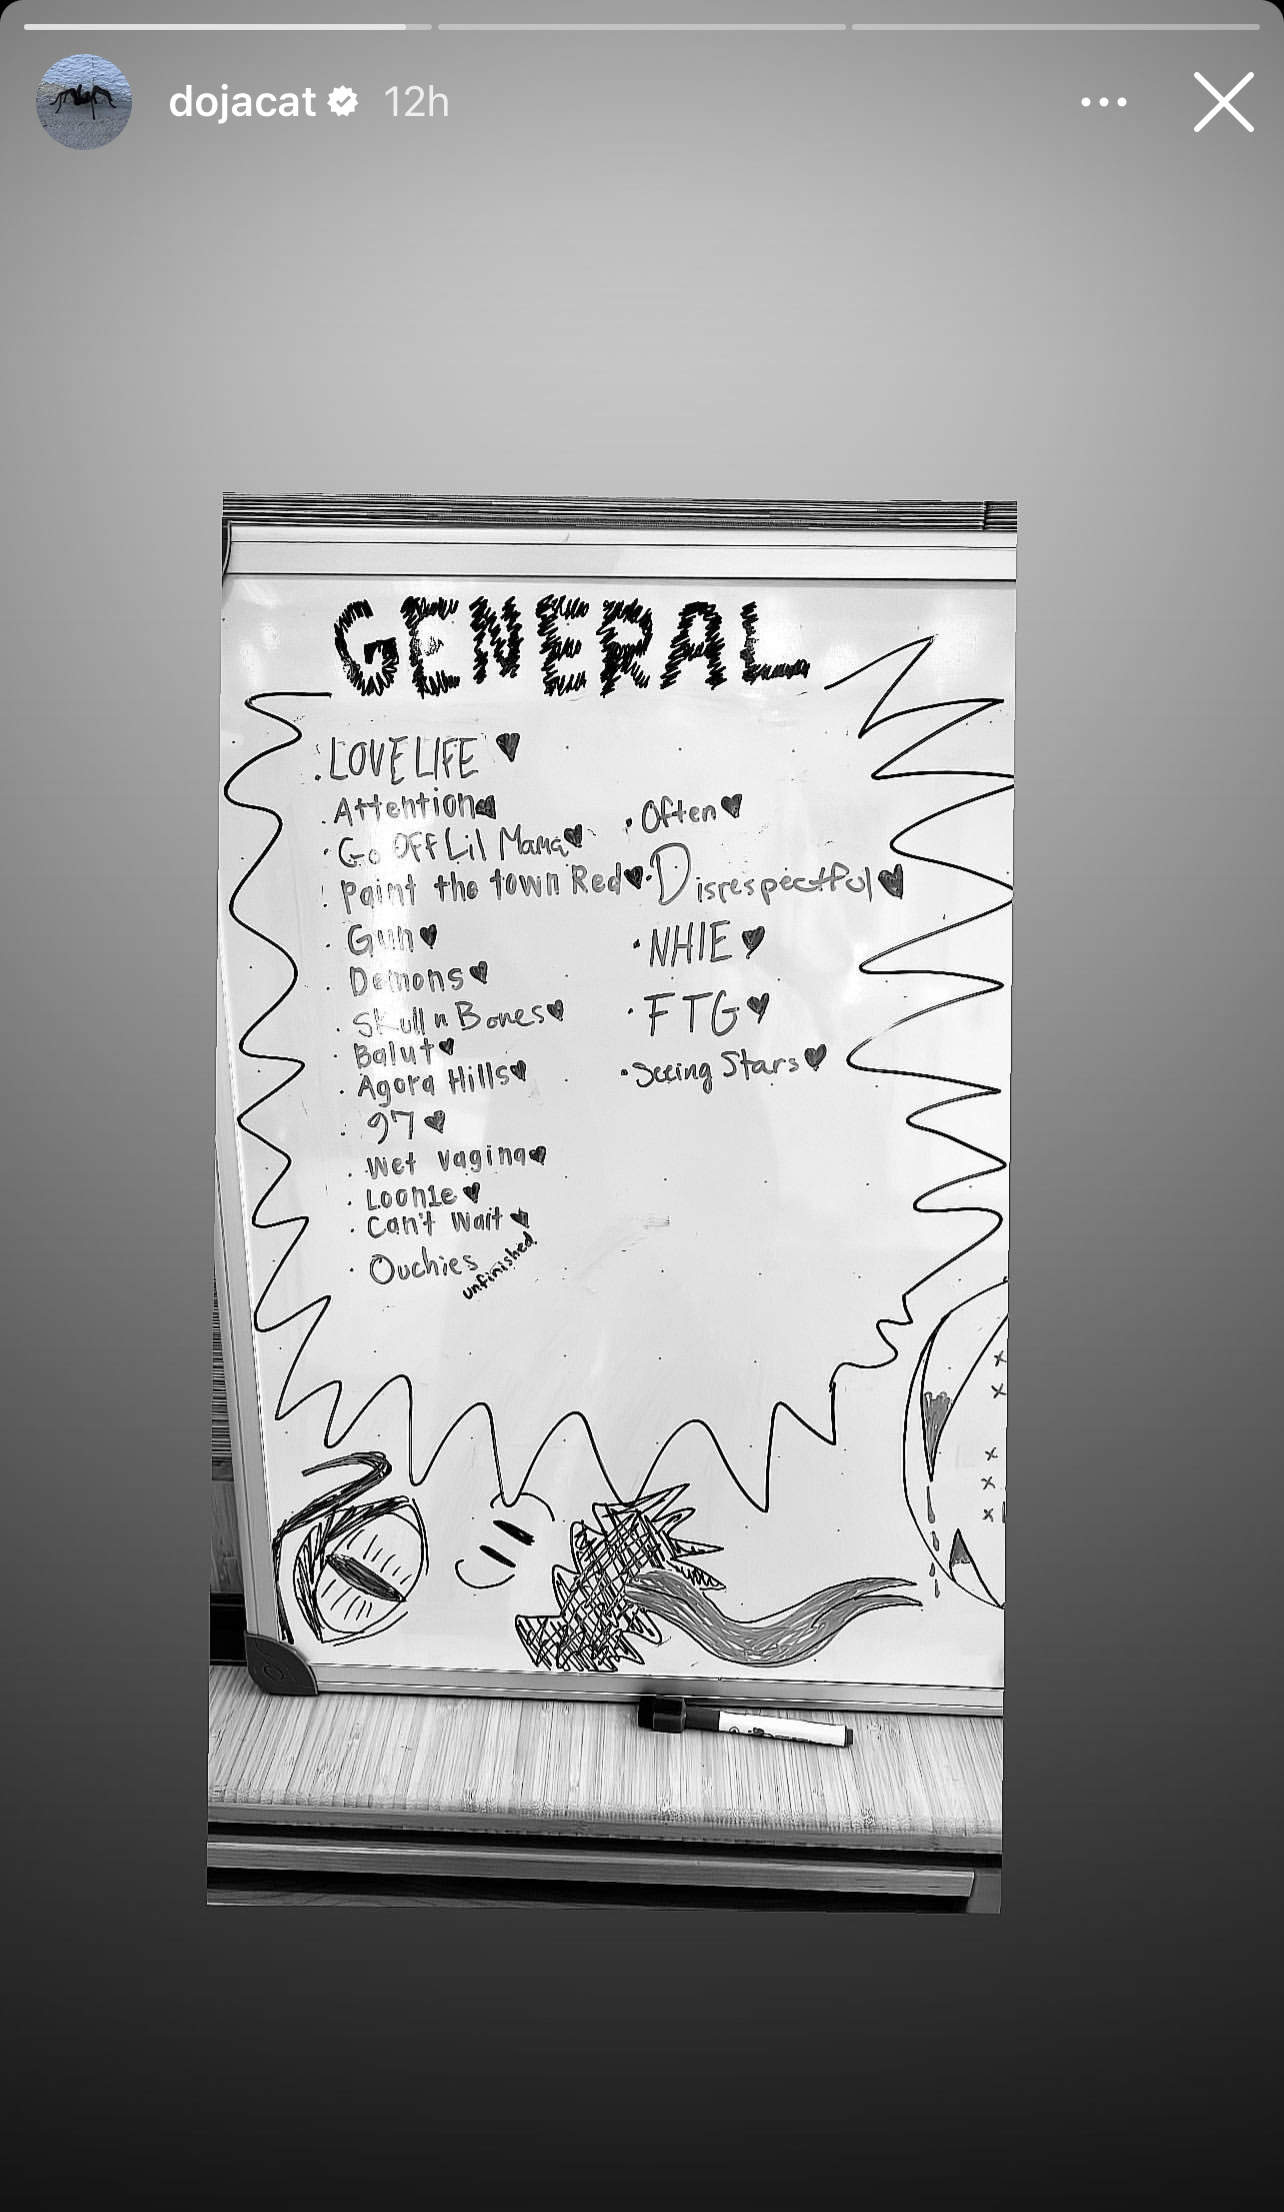 dojacat 12h
GENERAL
LOVE LIFE
Attention
Go OFF Lil Mama
Paint the town Red
Gun
Demons
Skull n Bones
Balut
Agora Hills
97
Wet Vagina
Loonie
Can't Wait
Ouchies
unfinished
Often
Disrespectful
NHIE
FTG
Seeing Stars